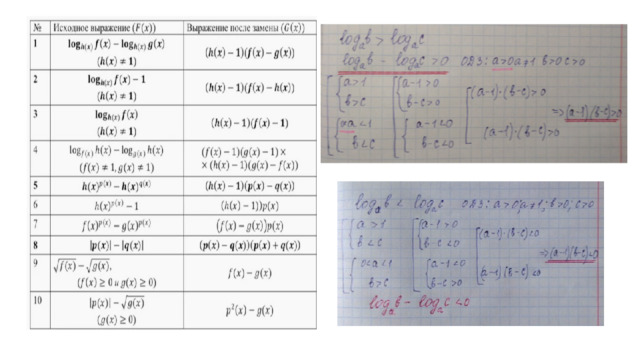 № Исходное выражение (F(x)) Выражение после замены (G(x))
1 log_{h(x)} f(x) − log_{h(x)} g(x) (h(x) − 1)(f(x) − g(x))
(h(x) ≠ 1)
2 log_{h(x)} f(x) − 1 (h(x) − 1)(f(x) − h(x))
(h(x) ≠ 1)
3 log_{h(x)} f(x) (h(x) − 1)(f(x) − 1)
(h(x) ≠ 1)
4 log_{f(x)} h(x) − log_{g(x)} h(x) (f(x) − 1)(g(x) − 1) ×
(f(x) ≠ 1, g(x) ≠ 1) × (h(x) − 1)(g(x) − f(x))
5 h(x)^{p(x)} − h(x)^{q(x)} (h(x) − 1)(p(x) − q(x))
6 h(x)^{p(x)} − 1 (h(x) − 1))p(x)
7 f(x)^{p(x)} − g(x)^{p(x)} (f(x) − g(x))p(x)
8 |p(x)| − |q(x)| (p(x) − q(x))(p(x) + q(x))
9 √f(x) − √g(x), f(x) − g(x)
(f(x) ≥ 0 и g(x) ≥ 0)
10 |p(x)| − √g(x) p²(x) − g(x)
(g(x) ≥ 0)
log_a b > log_a c
log_a b − log_a c > 0 ОДЗ: a>0 a≠1 b>0 c>0
a>1 a−1>0
b>c b−c>0 (a−1)·(b−c)>0
⇒ (a−1)(b−c)>0
0<a<1 a−1<0 (a−1)·(b−c)>0
b<c b−c<0
log_a b < log_a c ОДЗ: a>0, a≠1, b>0, c>0
a>1 a−1>0
b<c b−c<0 (a−1)·(b−c)<0
⇒ (a−1)(b−c)<0
0<a<1 a−1<0 (a−1)(b−c)<0
b>c b−c>0
log_a b − log_a c <0